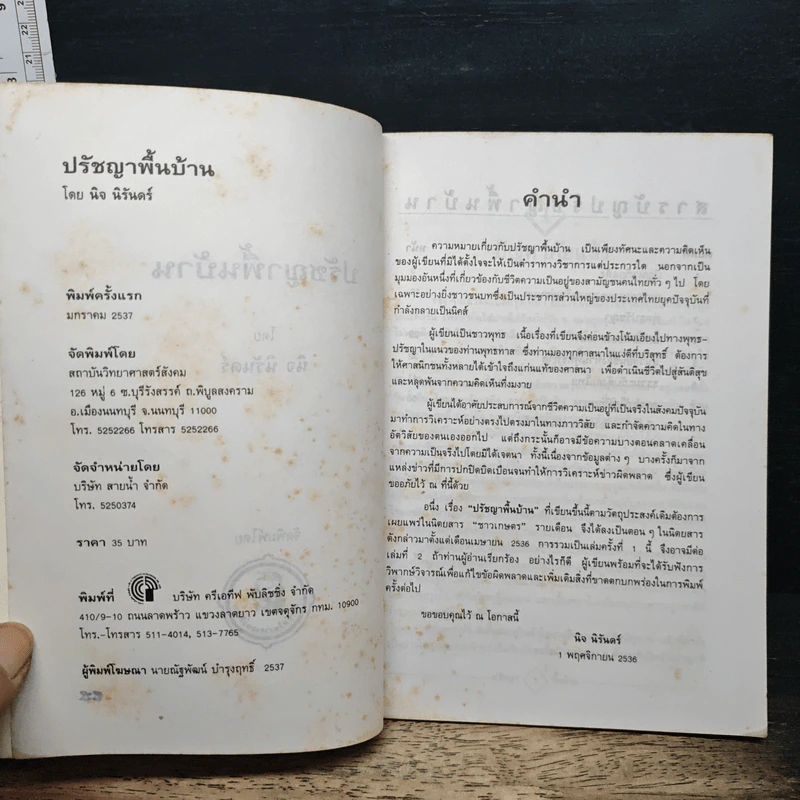 ปรัชญาพื้นบ้าน
โดย นิจ นิรันดร์
พิมพ์ครั้งแรก
มกราคม 2537
จัดพิมพ์โดย
สถาบันวิทยาศาสตร์สังคม
126 หมู่ 6 ซ.บุรีรังสรรค์ ถ.พิบูลสงคราม
อ.เมืองนนทบุรี จ.นนทบุรี 11000
โทร. 5252266 โทรสาร 5252266
จัดจำหน่ายโดย
บริษัท สายน้ำ จำกัด
โทร. 5250374
ราคา 35 บาท
พิมพ์ที่ บริษัท ครีเอทีฟ พับลิชชิ่ง จำกัด
410/9-10 ถนนลาดพร้าว แขวงลาดยาว เขตจตุจักร กทม. 10900
โทร.-โทรสาร 511-4014, 513-7765
ผู้พิมพ์โฆษณา นายณัฐพัฒน์ บำรุงฤทธิ์ 2537
คำนำ
ความหมายเกี่ยวกับปรัชญาพื้นบ้าน เป็นเพียงทัศนะและความคิดเห็น
ของผู้เขียนที่มิได้ตั้งใจจะให้เป็นตำราทางวิชาการแต่ประการใด นอกจากเป็น
มุมมองอันหนึ่งที่เกี่ยวข้องกับชีวิตความเป็นอยู่ของสามัญชนคนไทยทั่ว ๆ ไป โดย
เฉพาะอย่างยิ่งชาวชนบทซึ่งเป็นประชากรส่วนใหญ่ของประเทศไทยยุคปัจจุบันที่
กำลังกลายเป็นนิคส์
ผู้เขียนเป็นชาวพุทธ เนื้อเรื่องที่เขียนจึงค่อนข้างโน้มเอียงไปทางพุทธ-
ปรัชญาในแนวของท่านพุทธทาส ซึ่งท่านมองทุกศาสนาในแง่ดีที่บริสุทธิ์ ต้องการ
ให้ศาสนิกชนทั้งหลายได้เข้าใจถึงแก่นแท้ของศาสนา เพื่อดำเนินชีวิตไปสู่สันติสุข
และหลุดพ้นจากความคิดเห็นที่งมงาย
ผู้เขียนได้อาศัยประสบการณ์จากชีวิตความเป็นอยู่ที่เป็นจริงในสังคมปัจจุบัน
มาทำการวิเคราะห์อย่างตรงไปตรงมาในทางภาววิสัย และกำจัดความคิดในทาง
อัตวิสัยของตนเองออกไป แต่ถึงกระนั้นก็อาจมีข้อความบางตอนคลาดเคลื่อน
จากความเป็นจริงไปโดยมิได้เจตนา ทั้งนี้เนื่องจากข้อมูลต่าง ๆ บางครั้งก็มาจาก
แหล่งข่าวที่มีการปกปิดบิดเบือนจนทำให้การวิเคราะห์ข่าวผิดพลาด ซึ่งผู้เขียน
ขออภัยไว้ ณ ที่นี้ด้วย
อนึ่ง เรื่อง "ปรัชญาพื้นบ้าน" ที่เขียนขึ้นนี้ตามวัตถุประสงค์เดิมต้องการ
เผยแพร่ในนิตยสาร "ชาวเกษตร" รายเดือน จึงได้ลงเป็นตอน ๆ ในนิตยสาร
ดังกล่าวมาตั้งแต่เดือนเมษายน 2536 การรวมเป็นเล่มครั้งที่ 1 นี้ จึงอาจมีต่อ
เล่มที่ 2 ถ้าท่านผู้อ่านเรียกร้อง อย่างไรก็ดี ผู้เขียนพร้อมที่จะได้รับฟังการ
วิพากษ์วิจารณ์เพื่อแก้ไขข้อผิดพลาดและเพิ่มเติมสิ่งที่ขาดตกบกพร่องในการพิมพ์
ครั้งต่อไป
ขอขอบคุณไว้ ณ โอกาสนี้
นิจ นิรันดร์
1 พฤศจิกายน 2536